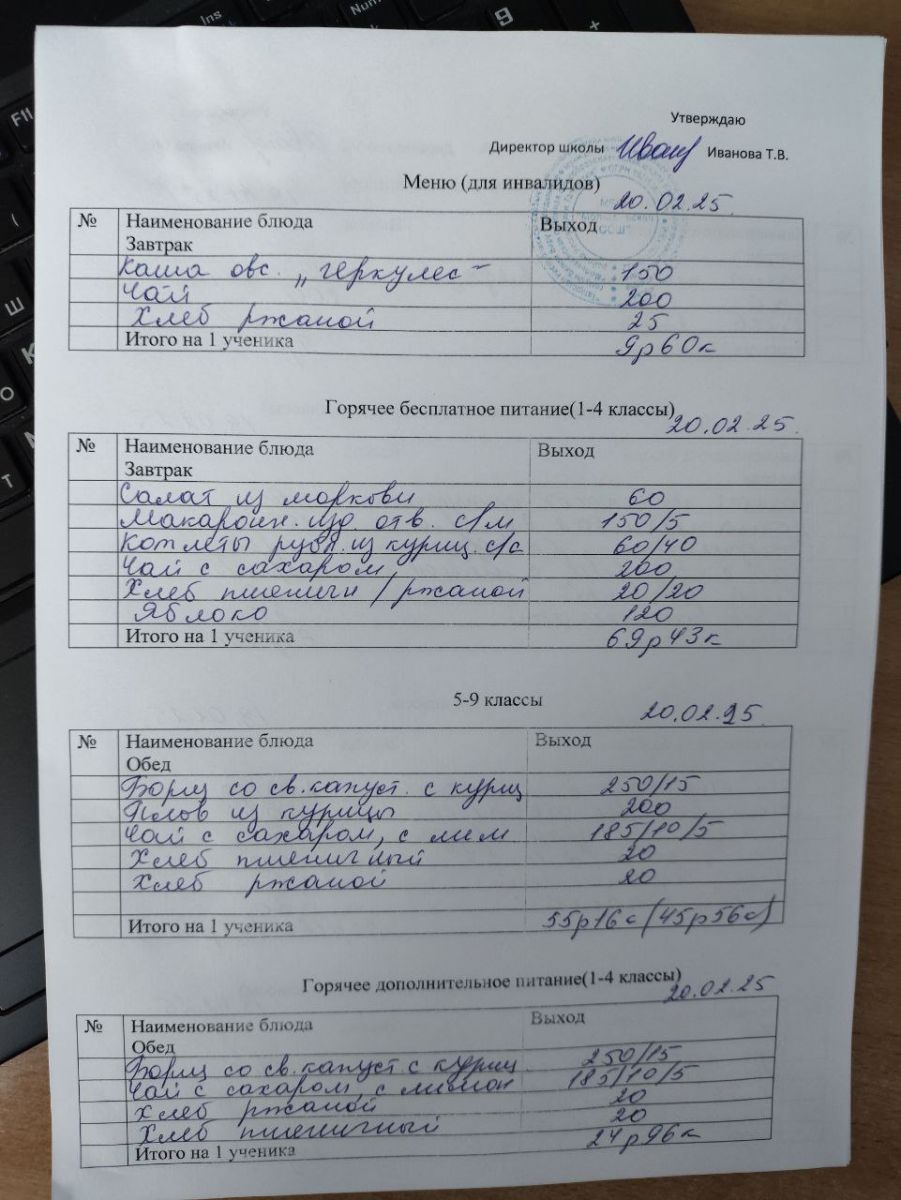 Утверждаю
Директор школы Иванова Т.В.
Меню (для инвалидов)
20.02.25.
№ Наименование блюда Выход
Завтрак
Каша овс. „геркулес" 150
Чай 200
Хлеб ржаной 25
Итого на 1 ученика 9р60к
Горячее бесплатное питание(1-4 классы)
20.02.25.
№ Наименование блюда Выход
Завтрак
Салат из моркови 60
Макарон. изд. отв. с/м 150/5
Котлеты рубл. из куриц. с/с 60/40
Чай с сахаром 200
Хлеб пшеничн / ржаной 20/20
Яблоко 120
Итого на 1 ученика 69р43к
5-9 классы
20.02.25.
№ Наименование блюда Выход
Обед
Борщ со св.капуст. с куриц 250/15
Плов из курицы 200
Чай с сахаром, с лим 185/10/5
Хлеб пшеничный 20
Хлеб ржаной 20
Итого на 1 ученика 55р16к (45р56к)
Горячее дополнительное питание(1-4 классы)
20.02.25
№ Наименование блюда Выход
Обед
Борщ со св.капуст с куриц 250/15
Чай с сахаром, с лимон 185/10/5
Хлеб ржаной 20
Хлеб пшеничный 20
Итого на 1 ученика 24р96к